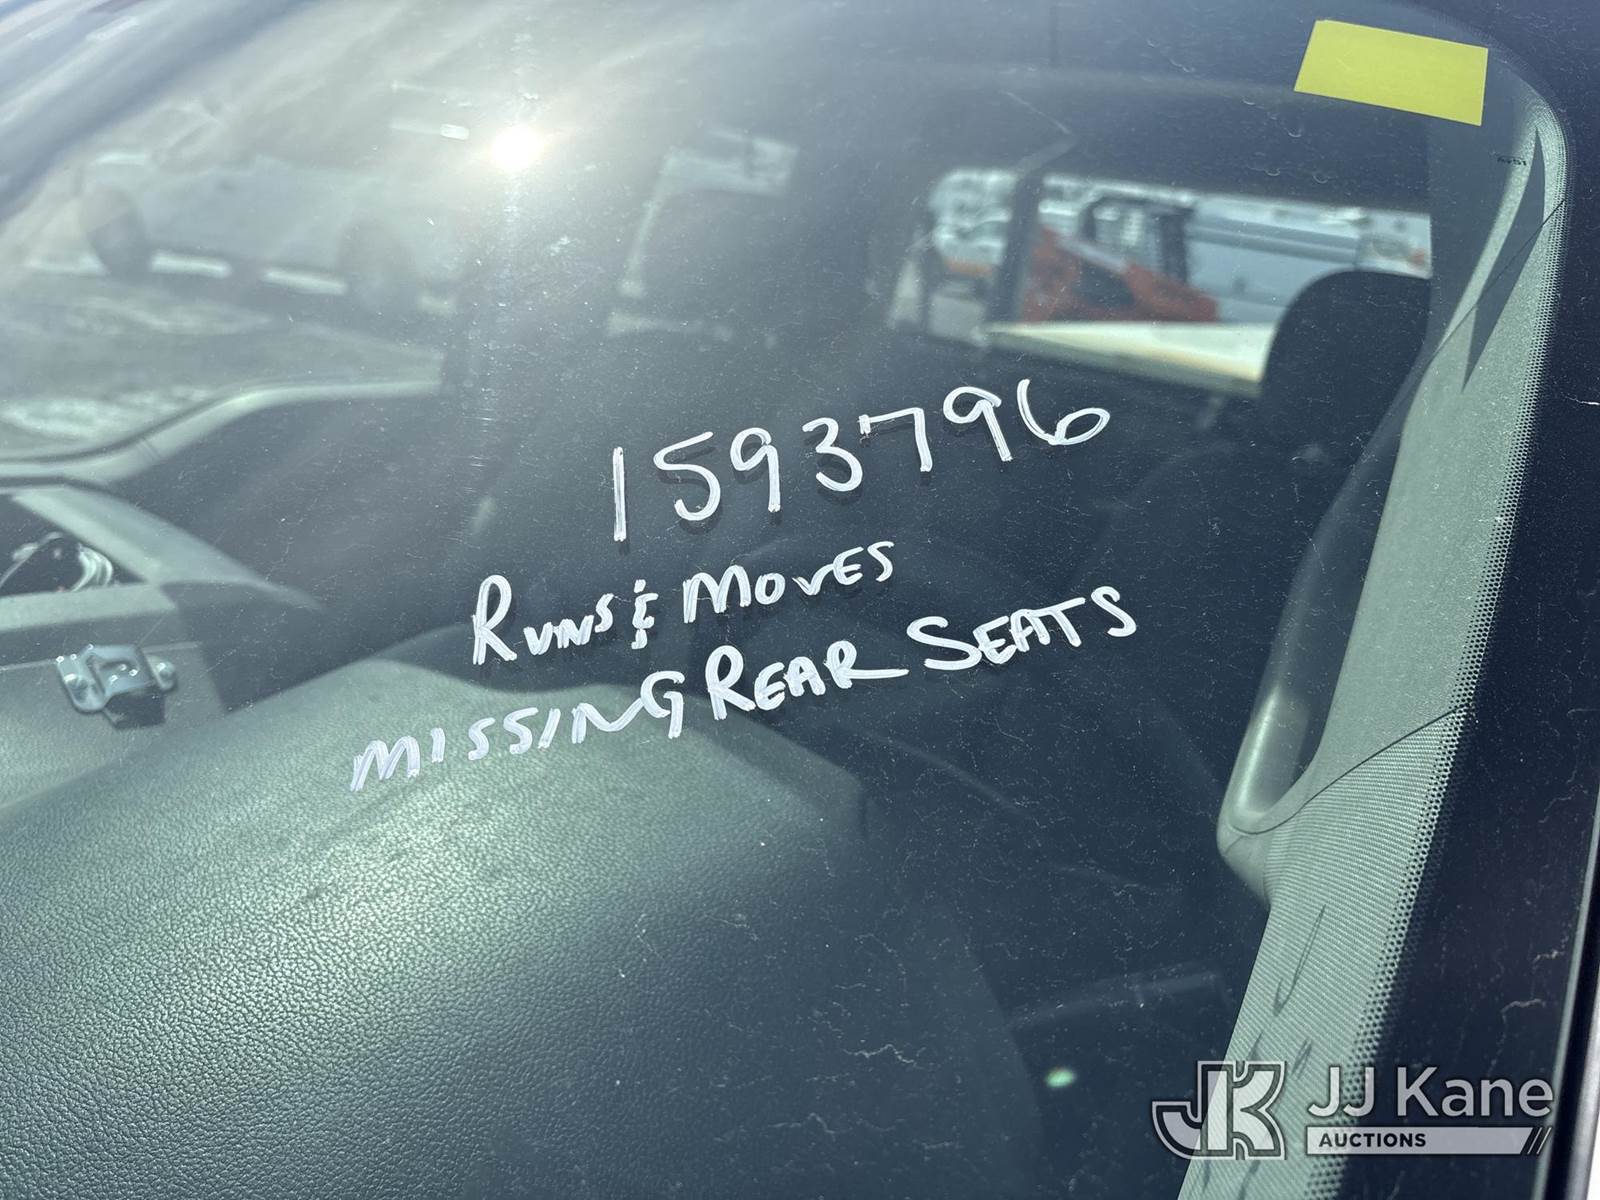 1593796
RUNS & MOVES
MISSING REAR SEATS
JK JJ Kane
AUCTIONS